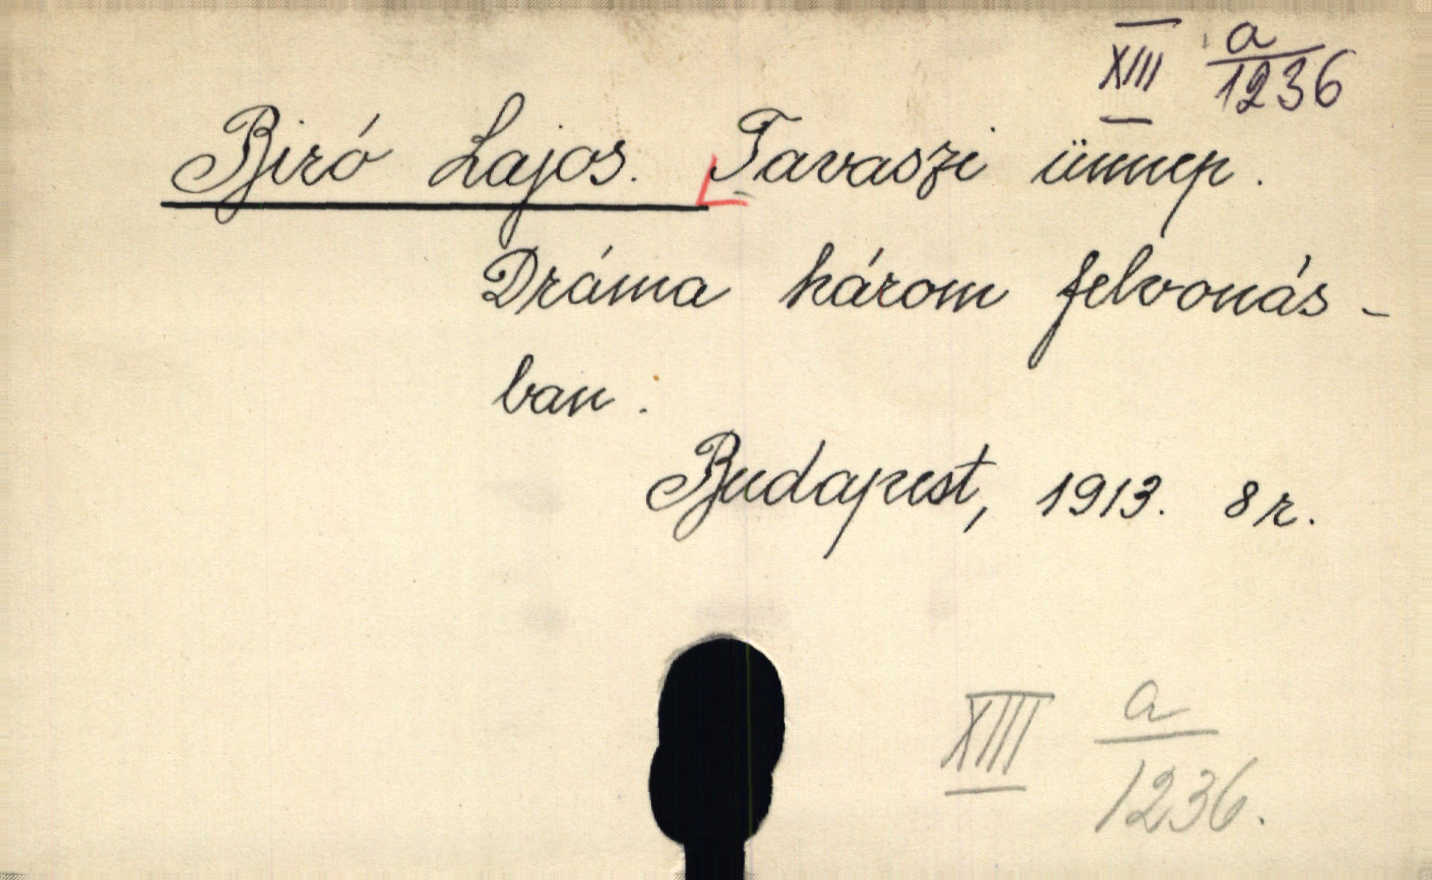 XIII a/1236
Biró Lajos. Tavaszi ünnep.
Dráma három felvonás-
ban.
Budapest, 1913. 8r.
XIII a/1236.